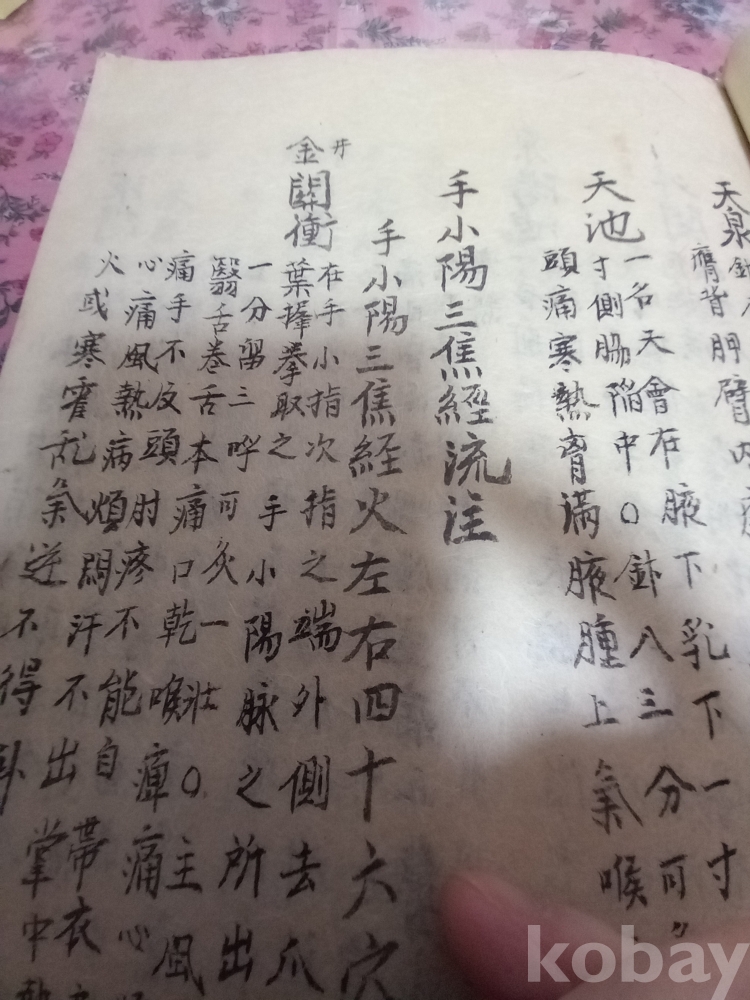 天泉
膺背胛臂内
天池
一名天會在腋下乳下一寸
寸側脇陷中○鉢八三分可〃
頭痛寒熱胷滿腋腫上氣喉
手小陽三焦經流注
手小陽三焦經火左右四十六穴
金井關衝
在手小指次指之端外側去爪
葉握拳取之手小陽脉之所出
一分留三呼可〃灸一壯○主風
翳舌卷舌本痛口乾喉痺痛心
痛手不及頭肘疼不能自帶衣
心痛風熱病煩悶汗不出掌中熱
火或寒霍乱氣逆不得卧
kobay